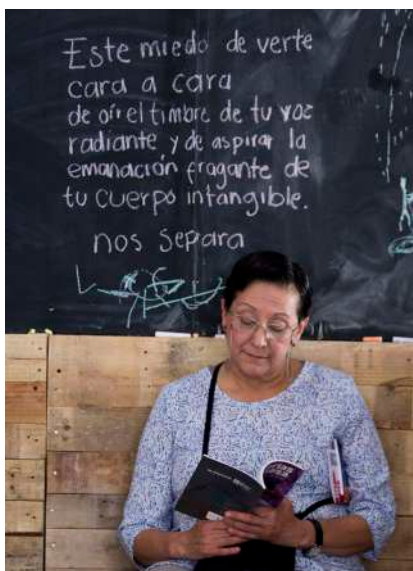 Este miedo de verte
cara a cara
de oír el timbre de tu voz
radiante y de aspirar la
emanación fragante de
tu cuerpo intangible.
nos separa